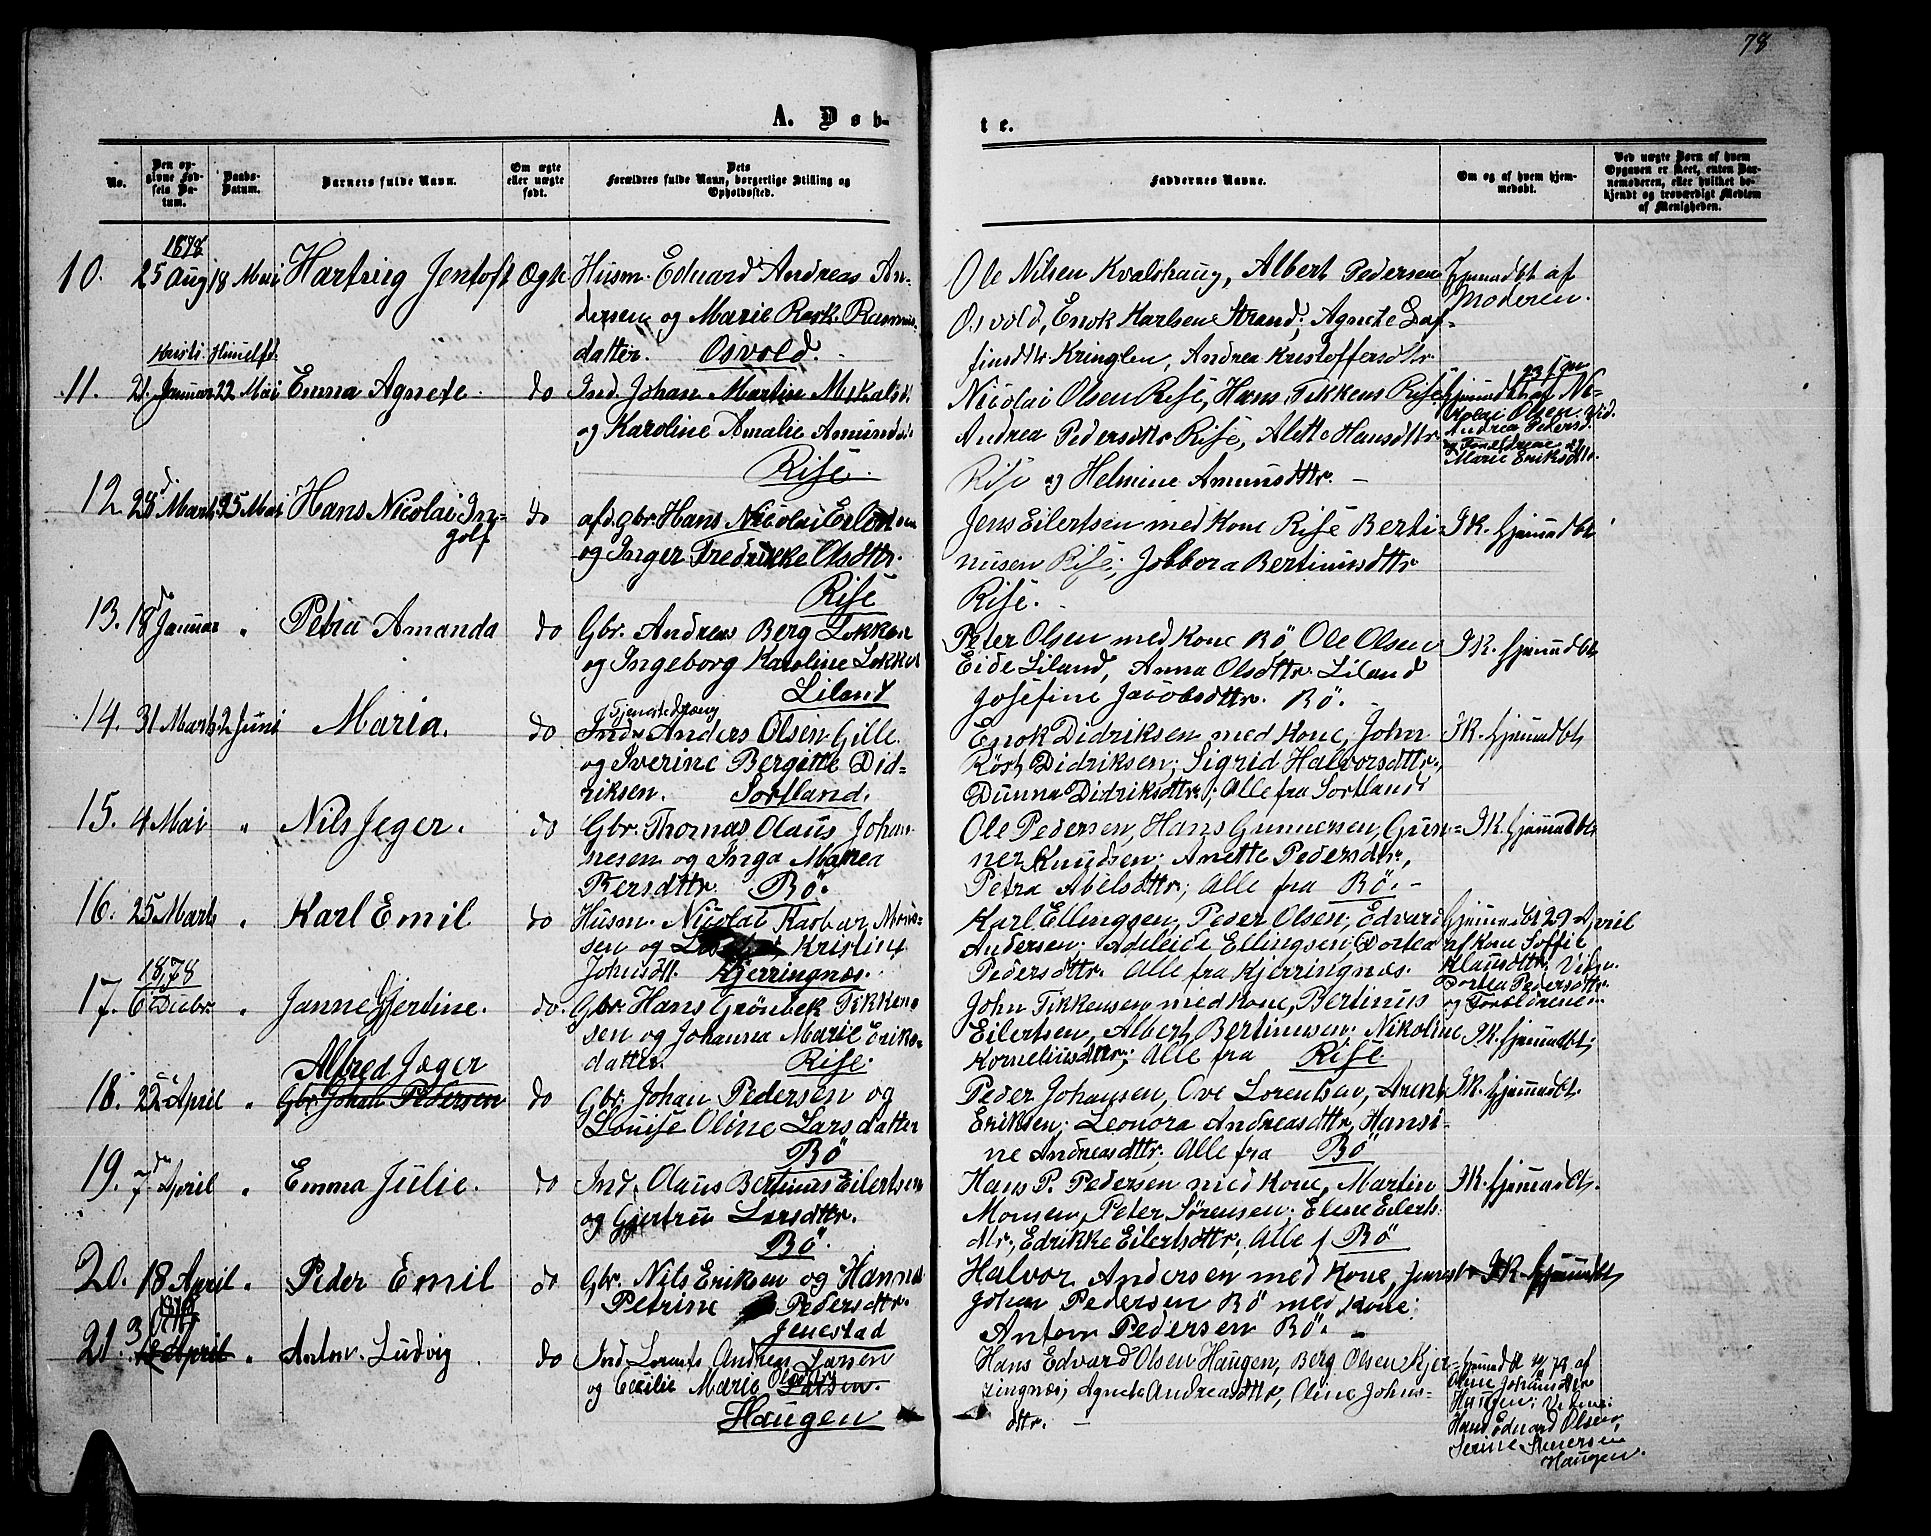 78
A. Døb-
te.
No.
Den op-
givne Fød-
sels Da-
tum.
Daabs-
Datum.
Barnets fulde Navn.
Om ægte
eller uægte
født.
Dets
Forældres fulde Navn, borgerlige Stilling og
Opholdssted.
Faddernes Navne.
Om og af hvem hjem-
medøbt.
Ved uægte Børn af hvem
Opgaven er skeet, enten Bar-
nemoderen, eller hvilket be-
kjendt og troværdigt Medlem
af Menigheden.
1878
10. 25 Aug 18 Mai Hartvig Jentoft Ægte Husm. Eduard Andreas An-
dersen og Marie Rask Rasmus-
datter. Osvold.
Ole Nilsen Kvalshaug, Albert Pedersen
Osvold, Enok Karlsen Strand; Agnete Daf-
finsdttr Kringlen, Andrea Kristoffersdtr
Hjemmedbt af
Moderen.
Kristi Himelfd.
11. 21. Januar 22 Mai Emma Agnete. do Ind. Johan Martin Mikalsd.
og Karoline Amalie Amundsd.
Rise.
Nicolai Olsen Rise, Hans Tikkens Rise
Andrea Pedersdttr Rise, Alette Hansdttr
Rise og Helmine Amunsdttr. —
23 Jan
Hjemmdbt af Ni-
kolai Olsen. Vid.
Andrea Pedersd.
og Forældrene og
Marie Eriksdttr.
12. 28 Marts 25 Mai Hans Nicolai In-
golf do afd. Gbr. Hans Nicolai Eilertsen
og Inger Fredrikke Olsdttr.
Rise
Jens Eilertsen med Kone Rise Berti-
nusen Rise; Jobbora Bertinusdttr
Rise.
IK. hjemmdbt
13. 18 Januar " Petra Amanda do Gbr. Andreas Berg Lokken
og Ingeborg Karoline Lokken
Liland
Peter Olsen med Kone Bø Ole Olsen
Eide Liland, Anna Olsdttr. Liland
Josefine Jacobsdttr. Bø.
IK. hjemmdbt
14. 31 Marts 2 Juni Maria. do. Tjenestedreng
Anders Olsen Gille
og Iverine Bergitte Did-
riksen. Sortland.
Enok Didriksen med Kone, John
Røst Didriksen; Sigrid Halvorsdttr.,
Dunna Didriksdttr; Alle fra Sortland
IK. hjemmdbt
15. 4 Mai " Nils Jeger. do Gbr. Thomas Olaus Johan-
nesen og Inga Marea
Persdttr. Bø.
Ole Pedersen, Hans Gunnersen, Gun-
ner Knudsen; Anette Pedersdtr.,
Petra Abelsdttr; Alle fra Bø. —
IK. hjemmdbt
16. 25 Marts " Karl Emil do Husm. Nicolai Kasbar Mons-
sen og Kristine
Johnsdtt. Kjerringnæs.
Karl Ellingsen, Peder Olsen; Edvard
Andersen; Adeleide Ellingsen; Dortea
Pedersdttr. Alle fra Kjerringnæs.
hjemmdbt 29 April
af Kone Soffie
Klausdttr. Vidn.
Dortea Pedersdttr
og Forældrene.
1878
17. 6 Decbr. " Janne Gjertine. do. Gbr. Hans Grönbek Tikken-
sen og Johanna Marie Eriks-
datter. Rise.
John Tikkensen med Kone, Bertinus
Eilertsen, Albert Bertinusen; Nikoline
Korneliusdttr; Alle fra Rise
IK. hjemmdbt;
Alfred Jæger
18. 25 April " Gbr Johan Pedersen do Gbr. Johan Pedersen og
Louise Oline Larsdatter
Bø
Peder Johansen, Ove Lorentsen, Arent
Eriksen; Leonora Andreasdttr, Hansi-
ne Andreasdttr; Alle fra Bø
IK. hjemmdbt.
19. 7 April " Emma Julie. do Ind. Olaus Bertinus Eilertsen
og Gjertru Larsdttr.
Bø.
Hans P. Pedersen med Kone, Martin
Monsen, Peter Sørensen; Eline Eilerts-
dtr., Edrikke Eilertsdttr; Alle f Bø
IK. hjemmdbt.
20. 18 April " Peder Emil do Gbr. Nils Eriksen og Hanna
Petrine Pedersdttr.
Jenestad
Halvor Andersen med Kone, Jenest.
Johan Pedersen Bø med Kone;
Anton Pedersen Bø. —
IK. hjemmdbt
21. 3 April " Anton Ludvig do Ind. Lorents Andreas Larsen
og Cecilie Marie Olsdttr Larsen.
Haugen
Hans Edvard Olsen Haugen, Berg Olsen Kjer-
ringnæs; Agnete Andreasdttr, Oline Johns-
dttr. —
hjemmdbt af
Oline Johansdtr
Haugen; Vidne:
Hans Eduard Olsen,
Serine Iversen
Haugen.